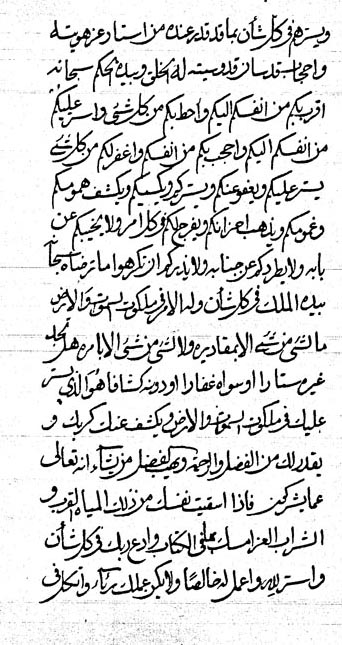 ويسترهم في كل شأن بما قد قدر عنده من استار عز هويته
واحجاب قدسان قدوسيته له الخلق وبيده الحكم سبحانه
اقرب بكم من انفسكم اليكم واحط بكم من كل شئ واستر عليكم
من انفسكم اليكم واحجب بكم من انفسكم واغفر لكم من كل شئ
يستر عليكم ويعفو عنكم ويستركم ويكشف همومكم
وغمومكم ويذهب احزانكم ويفرج لكم في كل امر ولا يخيبكم عن
بابه ولا يطردكم عن جنابه ولا يذركم ان تكرهوا ما ترضاه سبحانه
بيده الملك في كل شأن وله الامر في ملكوت السموات والارض
ما من شئ الا بمقاديره ولا لشئ من شئ الا بامره هل تجد
غيره ستارا او سواه غفارا او دونه كشافا هو الذي يستر
عليك في ملكوت السموات والارض ويكشف عنك كربك و
يقدر لك من الفضل والرحمة ويهب الفضل من يشاء انه تعالى
عما يشركون فاذا اسقيت نفسك من ذلك المياه العذب و
الشراب العذب امسك الكتاب وادع ربك في كل شأن
واستر لله واعمل له خالصا ولا يكن عملك رياء واتكل في